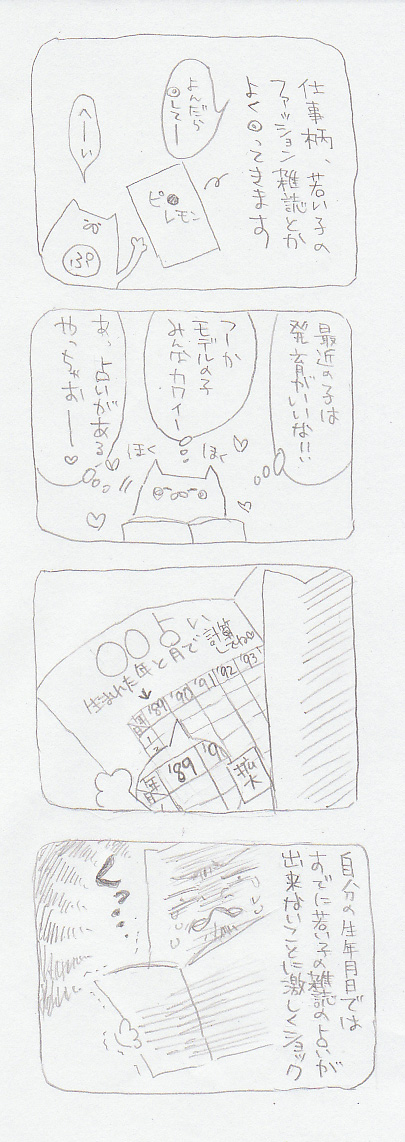 仕事柄、若い子の
ファッション雑誌とか
よく◎ってきます
よんだら
◎してー
へーい
ピ●
レモン
139
最近の子は
発育がいいな!!
つーか
モデルの子
みんなカワイー
あ、占いがある
やっちゃおー♡
ほく
ほく
○○占い
生まれた年と月で計算
してね♡
年
月
'89
'90
'91
'92
'93
1
2
年
月
'89
'9
1
拡大
自分の生年月日では
すでに若い子の雑誌の占いが
出来ないことに激しくショック
くっ…